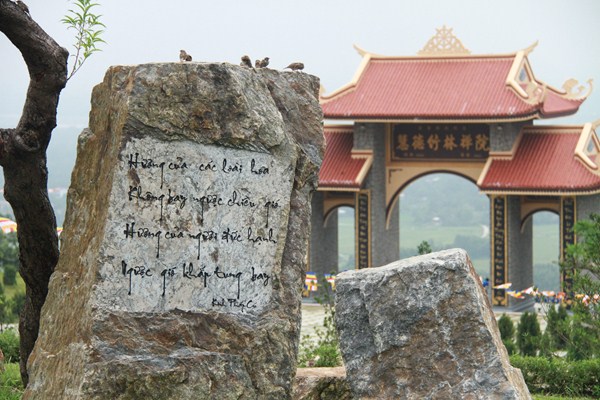 Hương của các loài hoa
Không bay ngược chiều gió
Hương của người đức hạnh
Ngược gió khắp tung bay
Kinh Pháp Cú
慧德竹林禪院